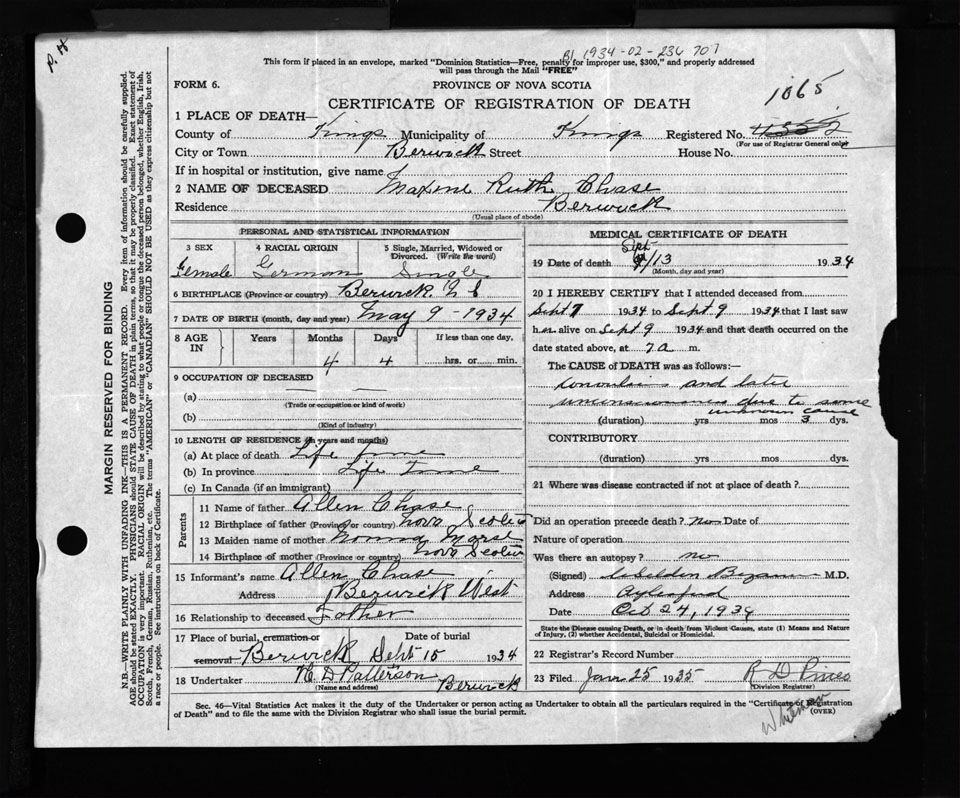 P. H
B1 1934-02-236 707
This form if placed in an envelope, marked "Dominion Statistics—Free, penalty for improper use, $300," and properly addressed
will pass through the Mail "FREE"
FORM 6.
PROVINCE OF NOVA SCOTIA
1065
CERTIFICATE OF REGISTRATION OF DEATH
1 PLACE OF DEATH—
County of Kings Municipality of Kings Registered No.
(For use of Registrar General only)
City or Town Berwick Street House No.
If in hospital or institution, give name
2 NAME OF DECEASED Maxine Ruth Chase
Residence Berwick
(Usual place of abode)
MARGIN RESERVED FOR BINDING
N.B.—WRITE PLAINLY WITH UNFADING INK—THIS IS A PERMANENT RECORD. Every item of information should be carefully supplied.
AGE should be stated EXACTLY. PHYSICIANS should STATE CAUSE OF DEATH in plain terms, so that it may be properly classified. Exact statement of
OCCUPATION is very important. RACIAL ORIGIN will be described by stating to what people or tongue the deceased person belonged, whether English, Irish,
Scotch, French, German, Russian, Ruthenian, etc. The terms "AMERICAN" or "CANADIAN" SHOULD NOT BE USED as they express citizenship but not
a race or people. See instructions on back of Certificate.
PERSONAL AND STATISTICAL INFORMATION
3 SEX 4 RACIAL ORIGIN 5 Single, Married, Widowed or
Divorced. (Write the word)
Female German Single
6 BIRTHPLACE (Province or country) Berwick. N S
7 DATE OF BIRTH (month, day and year) May 9 - 1934
8 AGE IN Years Months Days If less than one day,
4 4 hrs. or min.
9 OCCUPATION OF DECEASED
(a)
(Trade or occupation or kind of work)
(b)
(Kind of industry)
10 LENGTH OF RESIDENCE (in years and months)
(a) At place of death Life time
(b) In province Life time
(c) In Canada (if an immigrant)
Parents
11 Name of father Allen Chase
12 Birthplace of father (Province or country) Nova Scotia
13 Maiden name of mother Norma Morse
14 Birthplace of mother (Province or country) Nova Scotia
15 Informant's name Allen Chase
Address Berwick West
16 Relationship to deceased Father
17 Place of burial, cremation or Date of burial
removal Berwick Sept 15 1934
18 Undertaker N D Patterson Berwick
(Name and address)
MEDICAL CERTIFICATE OF DEATH
19 Date of death Sept 13 1934
(Month, day and year)
20 I HEREBY CERTIFY that I attended deceased from
Sept 7 1934 to Sept 9 1934 that I last saw
her alive on Sept 9 1934 and that death occurred on the
date stated above, at 7 a m.
The CAUSE of DEATH was as follows:—
and later
unconsciousness due to some
unknown cause
(duration) yrs mos 3 dys.
CONTRIBUTORY
(duration) yrs mos dys.
21 Where was disease contracted if not at place of death?
Did an operation precede death? No Date of
Nature of operation
Was there an autopsy? no
(Signed) M.D.
Address Aylesford
Date Oct 24, 1934
State the Disease causing Death, or in death from Violent Causes, state (1) Means and Nature
of Injury, (2) whether Accidental, Suicidal or Homicidal.
22 Registrar's Record Number
23 Filed Jan 25 1935 R D
(Division Registrar)
Sec. 46—Vital Statistics Act makes it the duty of the Undertaker or person acting as Undertaker to obtain all the particulars required in the "Certificate of Registration
of Death" and to file the same with the Division Registrar who shall issue the burial permit.
(OVER)
Whitman